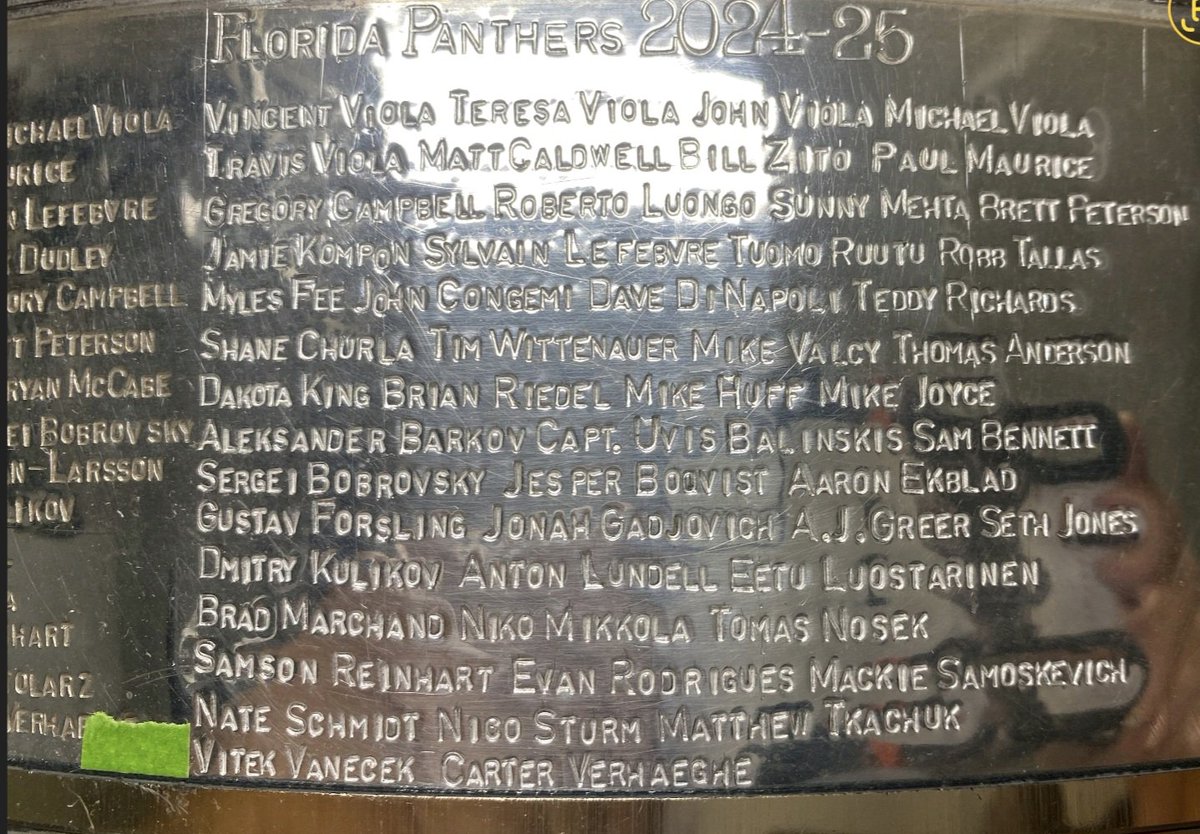 FLORIDA PANTHERS 2024-25
VINCENT VIOLA TERESA VIOLA JOHN VIOLA MICHAEL VIOLA
TRAVIS VIOLA MATT CALDWELL BILL ZITO PAUL MAURICE
GREGORY CAMPBELL ROBERTO LUONGO SUNNY MEHTA BRETT PETERSON
JAMIE KOMPON SYLVAIN LEFEBVRE TUOMO RUUTU ROBB TALLAS
MYLES FEE JOHN CONGEMI DAVE DINAPOLI TEDDY RICHARDS
SHANE CHURLA TIM WITTENAUER MIKE VALCY THOMAS ANDERSON
DAKOTA KING BRIAN RIEDEL MIKE HUFF MIKE JOYCE
ALEKSANDER BARKOV CAPT. UVIS BALINSKIS SAM BENNETT
SERGEI BOBROVSKY JESPER BOQVIST AARON EKBLAD
GUSTAV FORSLING JONAH GADJOVICH A.J. GREER SETH JONES
DMITRY KULIKOV ANTON LUNDELL EETU LUOSTARINEN
BRAD MARCHAND NIKO MIKKOLA TOMAS NOSEK
SAMSON REINHART EVAN RODRIGUES MACKIE SAMOSKEVICH
NATE SCHMIDT NICO STURM MATTHEW TKACHUK
VITEK VANECEK CARTER VERHAEGHE
ICHAEL VIOLA
URICE
N LEFEBVRE
DUDLEY
ORY CAMPBELL
T PETERSON
RYAN MCCABE
EI BOBROVSKY
N-LARSSON
IKOV
A
HART
OLARZ
VERHAE